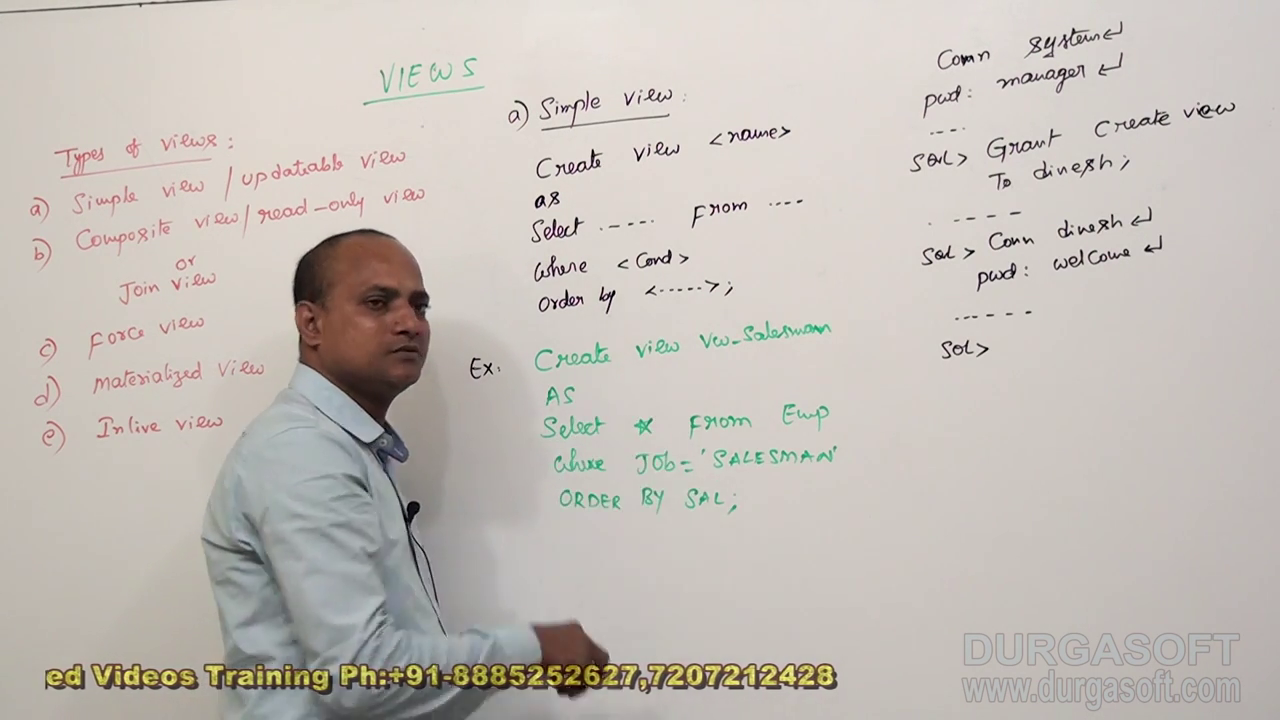 VIEWS
Types of views :
a) Simple view / updateable view
b) Composite view / read-only view
or
Join view
c) Force view
d) Materialized view
e) Inlive view
a) Simple view :
Create view <name>
as
Select ..---. From ----
Where <Cond>
Order by <----->;
Ex: Create view vw_Salesman
AS
Select * From Emp
Where Job='SALESMAN'
ORDER BY SAL;
Conn system↵
pwd: manager↵
----
SQL> Grant Create view
To dinesh;
. ----
SQL> Conn dinesh↵
pwd: welcome↵
------
SQL>
ed Videos Training Ph:+91-8885252627,7207212428
DURGASOFT
www.durgasoft.com